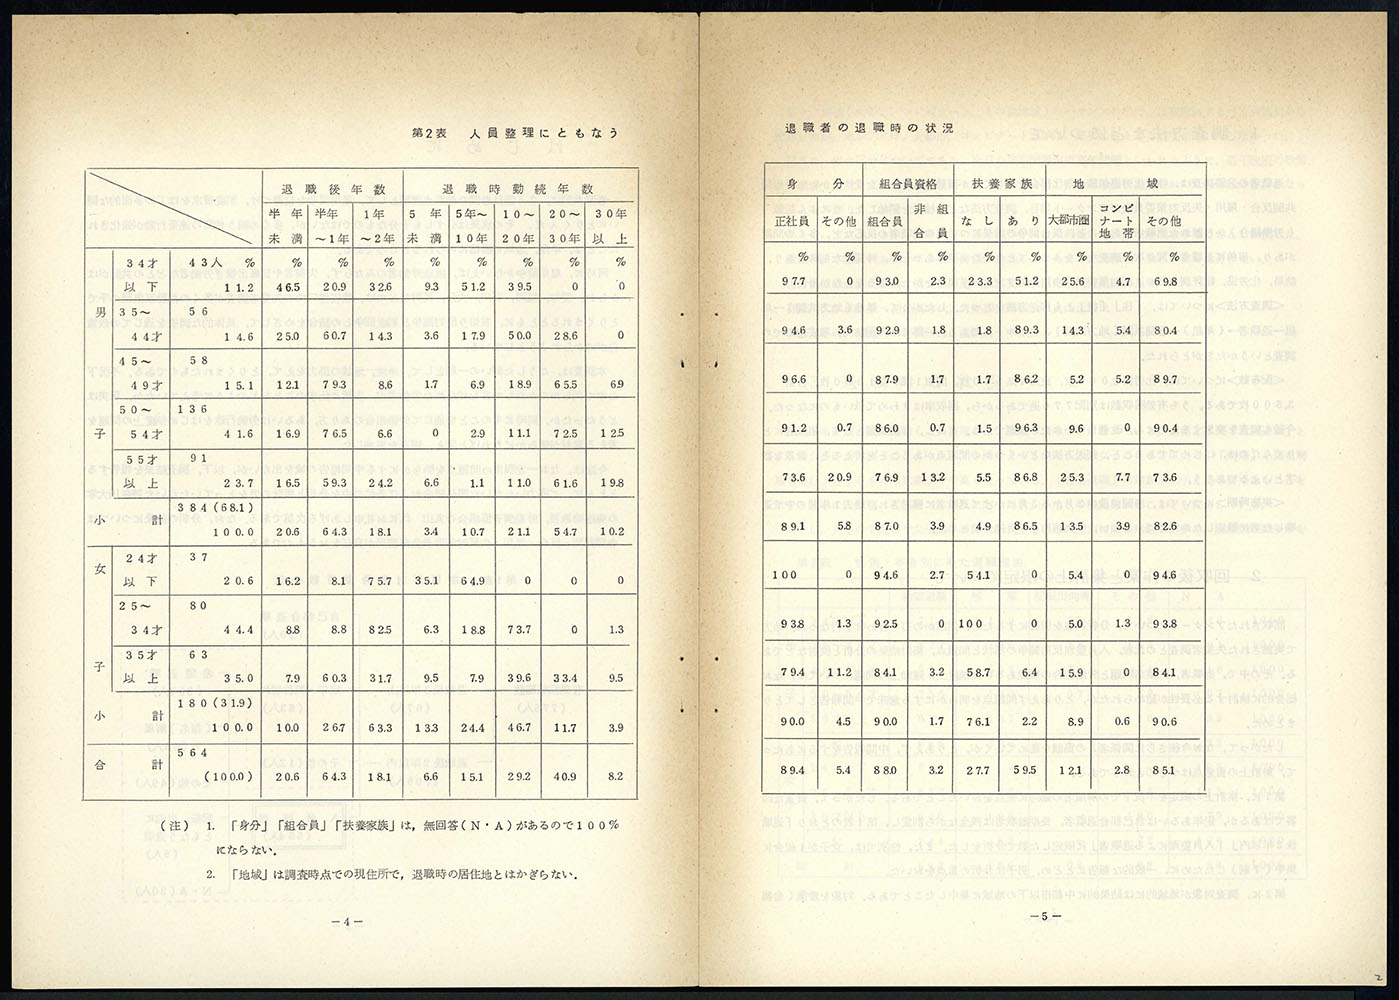 第2表 人員整理にともなう
退職後年数 退職時勤続年数
半年 半年 1年 5年 5年〜 10〜 20〜 30年
未満 〜1年 〜2年 未満 10年 20年 30年 以上
男 34才 43人 % % % % % % % % %
以下 11.2 46.5 20.9 32.6 9.3 51.2 39.5 0 0
35〜 56
44才 14.6 25.0 60.7 14.3 3.6 17.9 50.0 28.6 0
45〜 58
49才 15.1 12.1 79.3 8.6 1.7 6.9 18.9 65.5 6.9
50〜 136
子 54才 41.6 16.9 76.5 6.6 0 2.9 11.1 72.5 12.5
55才 91
以上 23.7 16.5 59.3 24.2 6.6 1.1 11.0 61.6 19.8
小計 384(68.1)
100.0 20.6 64.3 18.1 3.4 10.7 21.1 54.7 10.2
女 24才 37
以下 20.6 16.2 8.1 75.7 35.1 64.9 0 0 0
25〜 80
34才 44.4 8.8 8.8 82.5 6.3 18.8 73.7 0 1.3
子 35才 63
以上 35.0 7.9 60.3 31.7 9.5 7.9 39.6 33.4 9.5
小計 180(31.9)
100.0 10.0 26.7 63.3 13.3 24.4 46.7 11.7 3.9
合計 564
(100.0) 20.6 64.3 18.1 6.6 15.1 29.2 40.9 8.2
(注) 1. 「身分」「組合員」「扶養家族」は,無回答(N・A)があるので100%
にならない.
2. 「地域」は調査時点での現住所で,退職時の居住地とはかぎらない.
—4—
退職者の退職時の状況
身分 組合員資格 扶養家族 地域
正社員 その他 組合員 非組合員 なし あり 大都市圏 コンビナート地帯 その他
% % % % % % % % %
97.7 0 93.0 2.3 23.3 51.2 25.6 4.7 69.8
94.6 3.6 92.9 1.8 1.8 89.3 14.3 5.4 80.4
96.6 0 87.9 1.7 1.7 86.2 5.2 5.2 89.7
91.2 0.7 86.0 0.7 1.5 96.3 9.6 0 90.4
73.6 20.9 76.9 13.2 5.5 86.8 25.3 7.7 73.6
89.1 5.8 87.0 3.9 4.9 86.5 13.5 3.9 82.6
100 0 94.6 2.7 54.1 0 5.4 0 94.6
93.8 1.3 92.5 0 100 0 5.0 1.3 93.8
79.4 11.2 84.1 3.2 58.7 6.4 15.9 0 84.1
90.0 4.5 90.0 1.7 76.1 2.2 8.9 0.6 90.6
89.4 5.4 88.0 3.2 27.7 59.5 12.1 2.8 85.1
—5—
2